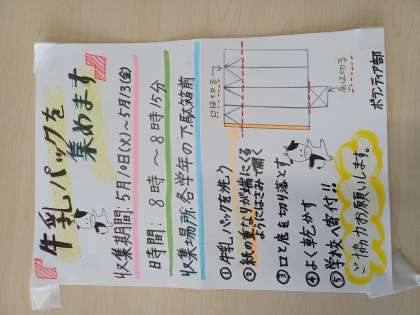 牛乳パックを
集めます
収集期間：5月10日(火)～5月13(金)
時間：8時～8時15分
収集場所：各学年の下駄箱前
口は切る
底は切る
①牛乳パックを洗う
②紙の重なりが端にくる
ようにはさみで開く
③口と底を切り落とす
④よく乾かす
⑤学校へ寄付!!
ご協力お願いします。
ボランティア部